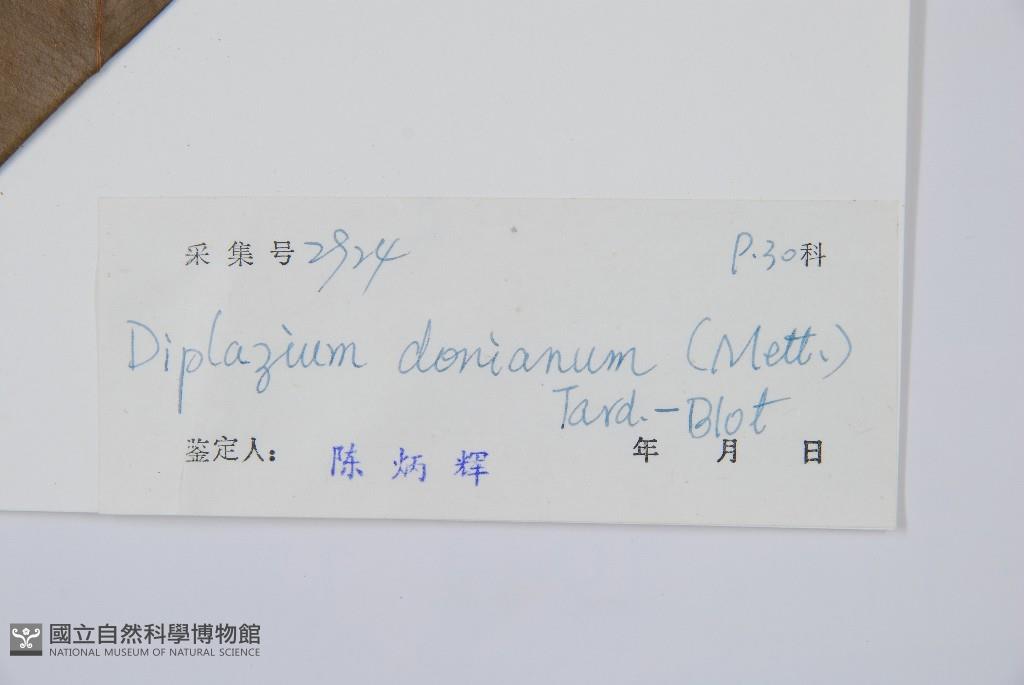 采集号 2924 P.30科
Diplazium donianum (Mett.)
Tard.-Blot
鉴定人: 陈炳辉 年 月 日
國立自然科學博物館
NATIONAL MUSEUM OF NATURAL SCIENCE